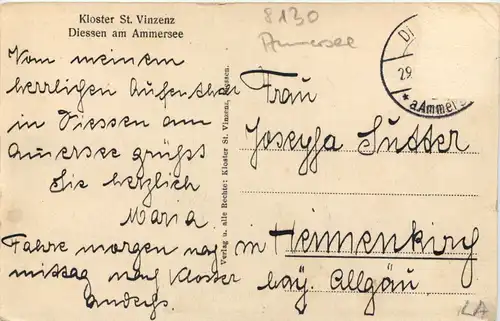 Kloster St. Vinzenz
Diessen am Ammersee
8130
Ammersee
29
* a. Ammer
Von meinem
herrlichen Aufenthalt
in Diessen am
Amersee grüßt
Sie herzlich
Maria.
Fahre morgen nach
mittag nach Kloster
Andechs.
Verlag u. alle Rechte: Kloster St. Vinzenz, Diessen.
Frau
Josepha Sutter
in Heimenkirch
bay. Allgäu.
LA